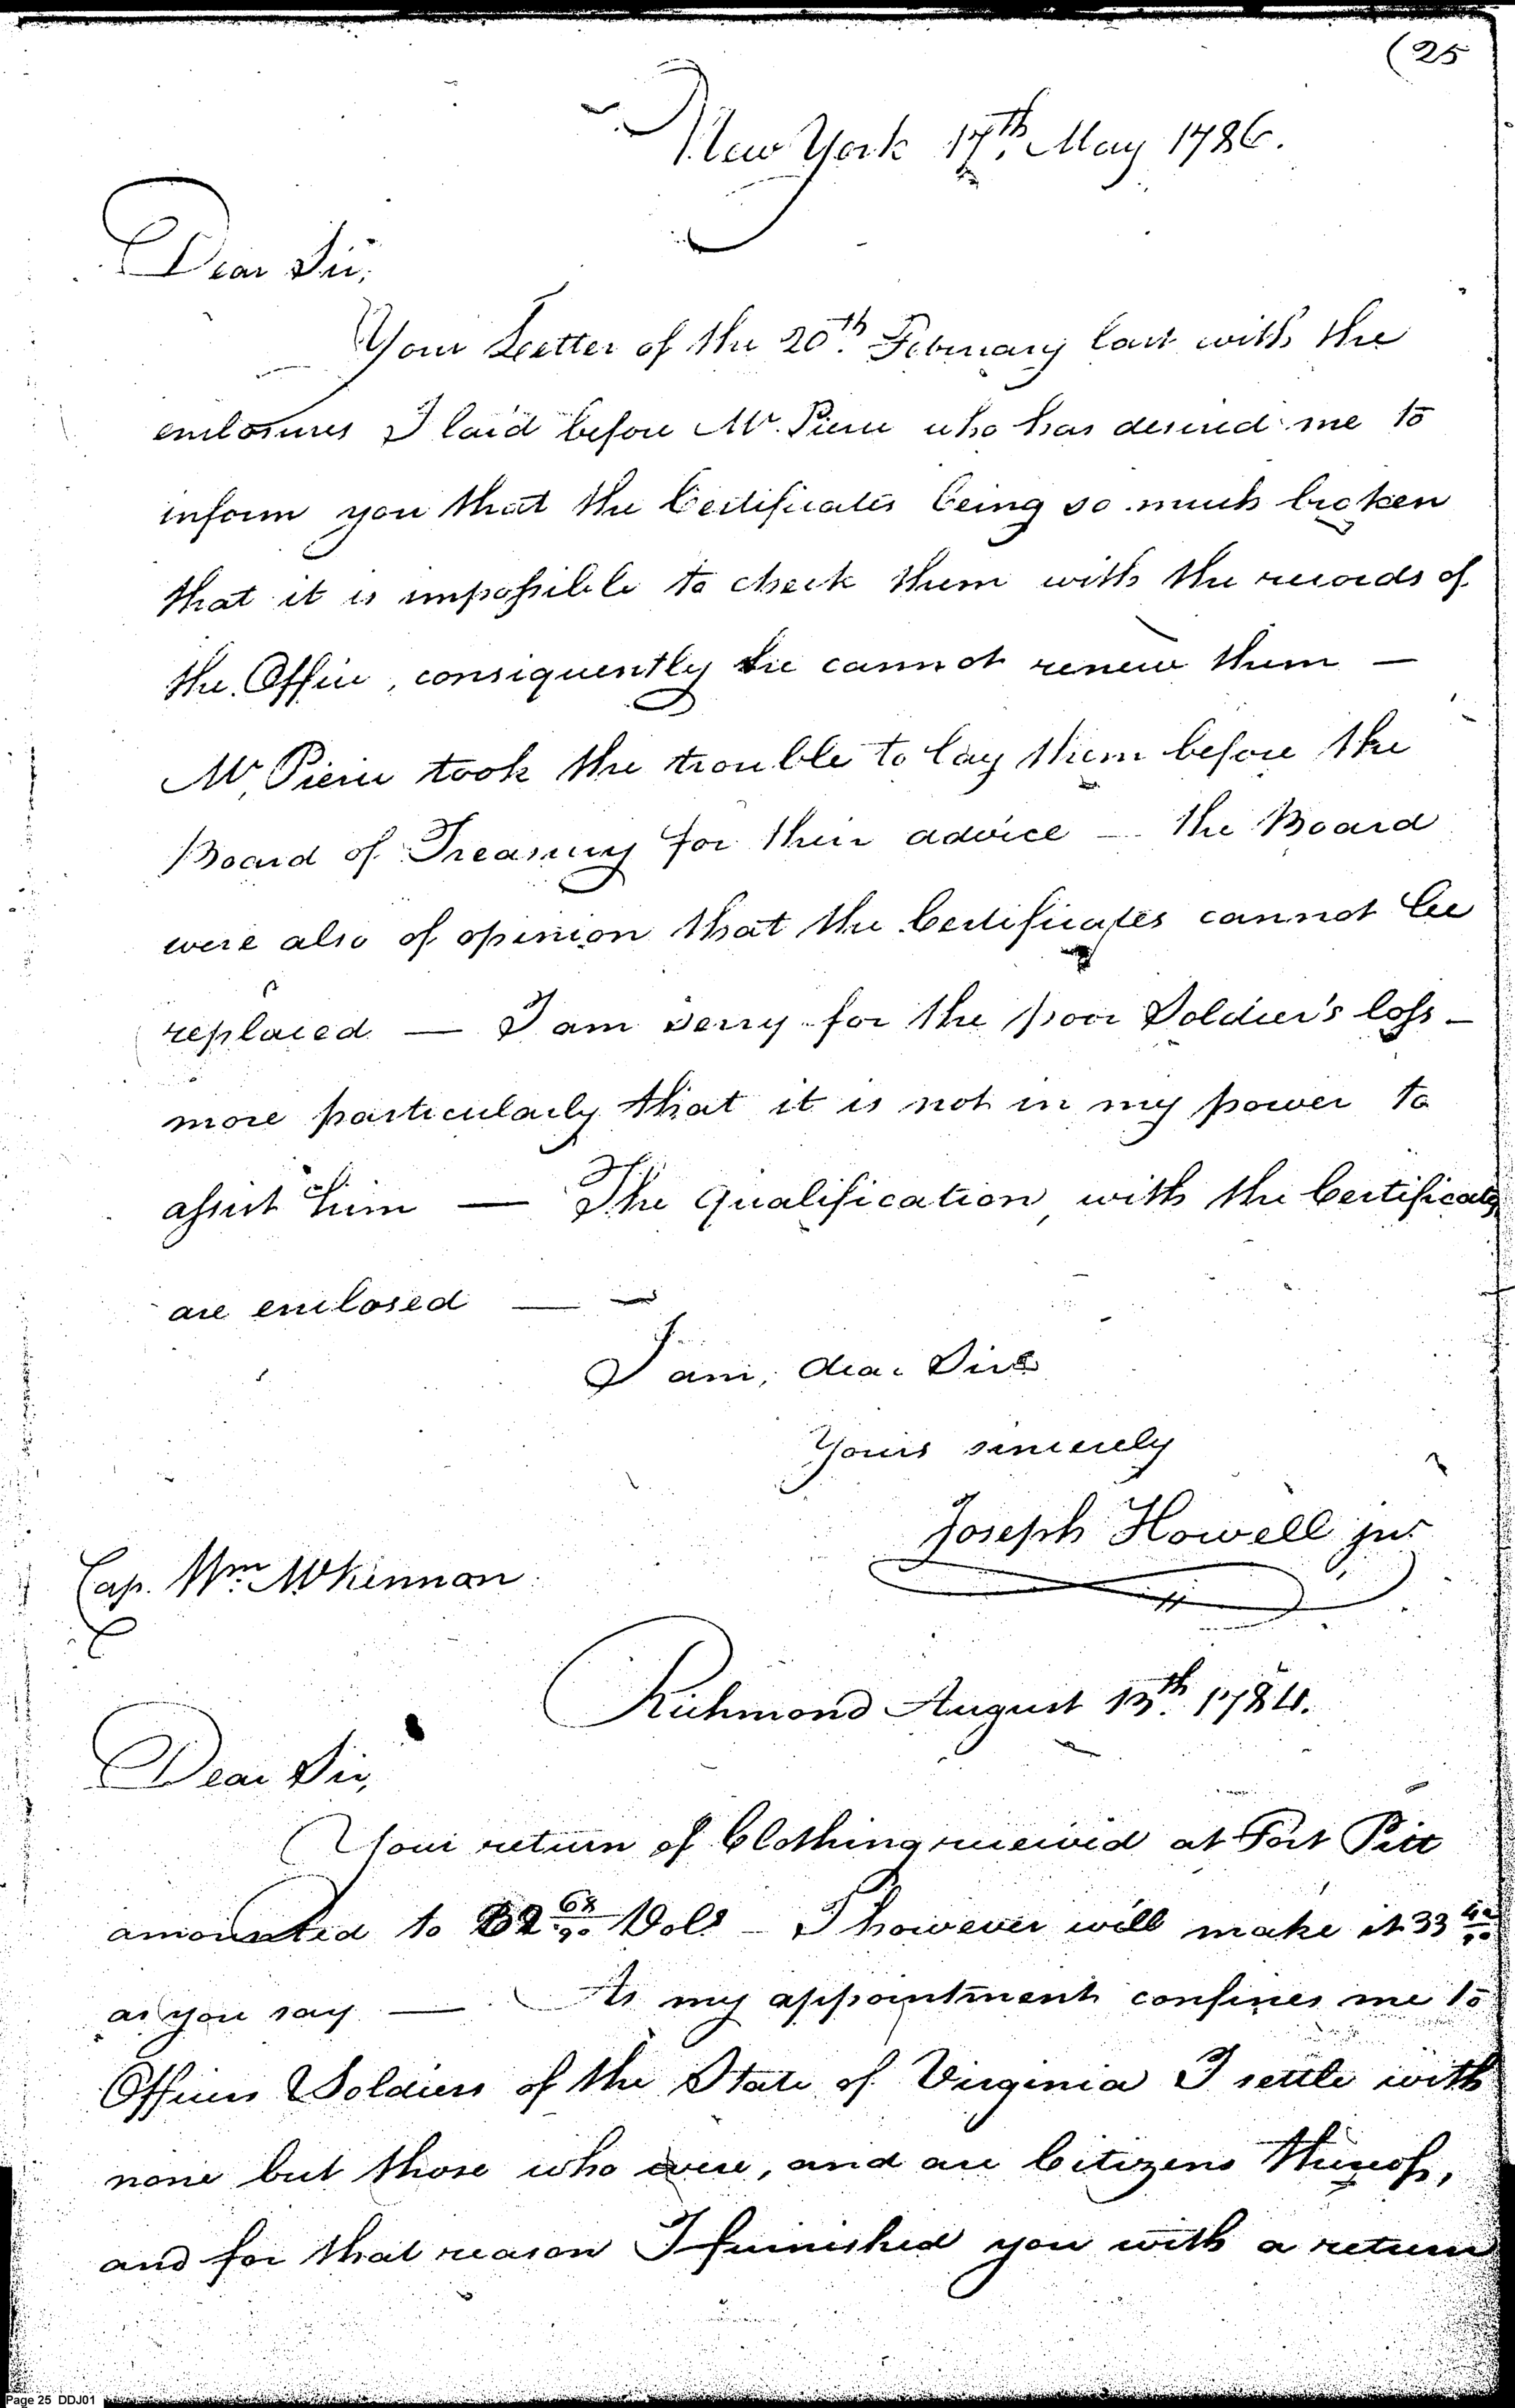 (25
New York 17th. May 1786.
Dear Sir,
Your Letter of the 20th. February last with the
enclosures I laid before Mr. Pierce who has desired me to
inform you that the Certificates being so much broken
that it is impossible to check them with the records of
the Office, consiquently he cannot renew them —
Mr. Pierce took the trouble to lay them before the
Board of Treasury for their advice — the Board
were also of opinion that the Certificates cannot be
replaced — I am sorry for the poor Soldier's loss —
more particularly that it is not in my power to
assist him — The Qualification, with the Certificates
are enclosed —
I am, dear Sir
Yours sincerely
Joseph Howell jur.
Cap. Wm. McKennan
Richmond August 13th. 1784.
Dear Sir,
Your return of Clothing received at Fort Pitt
amounted to 32 68/90 Dols — I however will make it 33 42/90
as you say — As my appointment confines me to
Officers & Soldiers of the State of Virginia I settle with
none but those who were, and are Citizens thereof,
and for that reason I furnished you with a return
Page 25 DDJ01